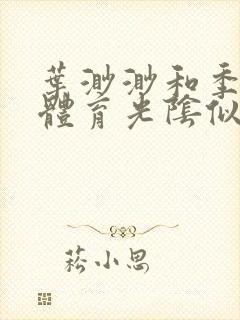 葉渺渺和季
體育光陰似
菘小思